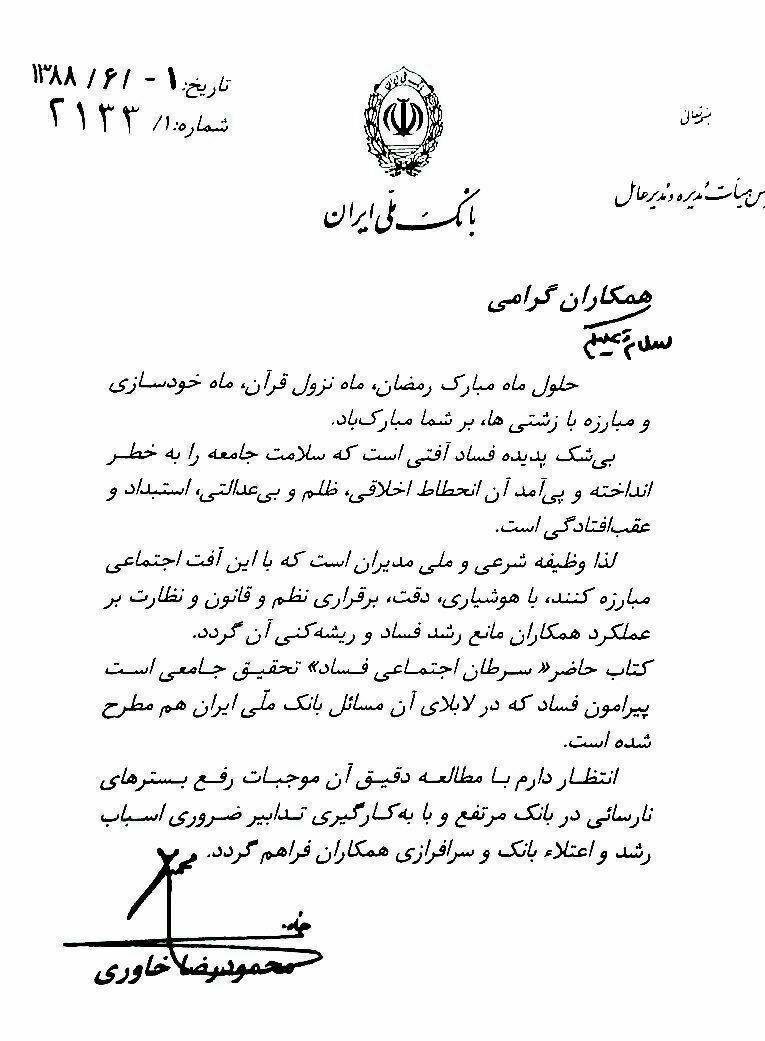 بسمه‌تعالی
تاریخ: ۱ - /۶/ ۱۳۸۸
شماره: ۱/ ۲۱۳۳
هیأت مدیره و مدیر عامل
بانک ملی ایران
همکاران گرامی
سلام علیکم
حلول ماه مبارک رمضان، ماه نزول قرآن، ماه خودسازی
و مبارزه با زشتی ها، بر شما مبارک‌باد.
بی‌شک پدیده فساد آفتی است که سلامت جامعه را به خطر
انداخته و پی‌آمد آن انحطاط اخلاقی، ظلم و بی‌عدالتی، استبداد و
عقب‌افتادگی است.
لذا وظیفه شرعی و ملی مدیران است که با این آفت اجتماعی
مبارزه کنند، با هوشیاری، دقت، برقراری نظم و قانون و نظارت بر
عملکرد همکاران مانع رشد فساد و ریشه‌کنی آن گردد.
کتاب حاضر« سرطان اجتماعی فساد» تحقیق جامعی است
پیرامون فساد که در لابلای آن مسائل بانک ملّی ایران هم مطرح
شده است.
انتظار دارم با مطالعه دقیق آن موجبات رفع بسترهای
نارسائی در بانک مرتفع و با به‌کارگیری تدابیر ضروری اسباب
رشد و اعتلاء بانک و سرافرازی همکاران فراهم گردد.
محمودرضا خاوری